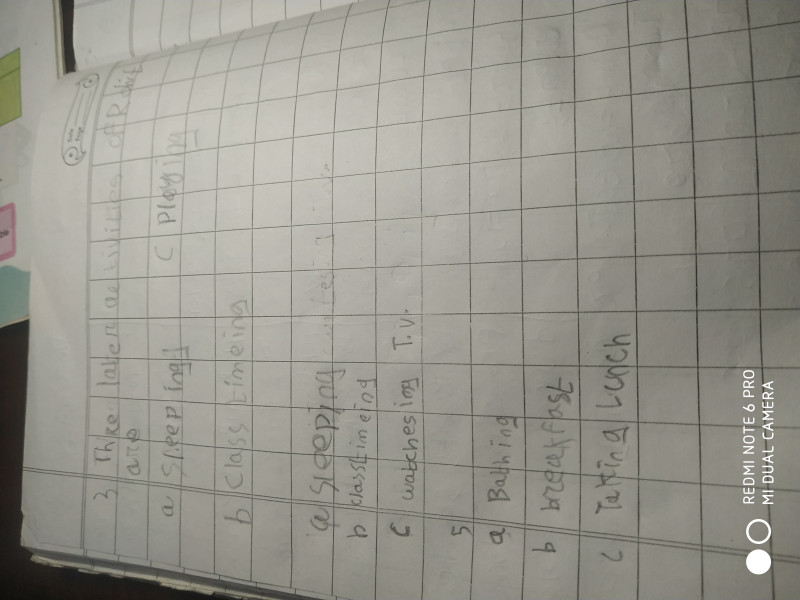 3 Three later activities of Rohit
are
a Sleeping C Playing
b Class timeing
a Sleeping
b classtimeing
C watchesing T.V.
5
a Bathing
b breakfast
c Taking Lunch
REDMI NOTE 6 PRO
MI DUAL CAMERA